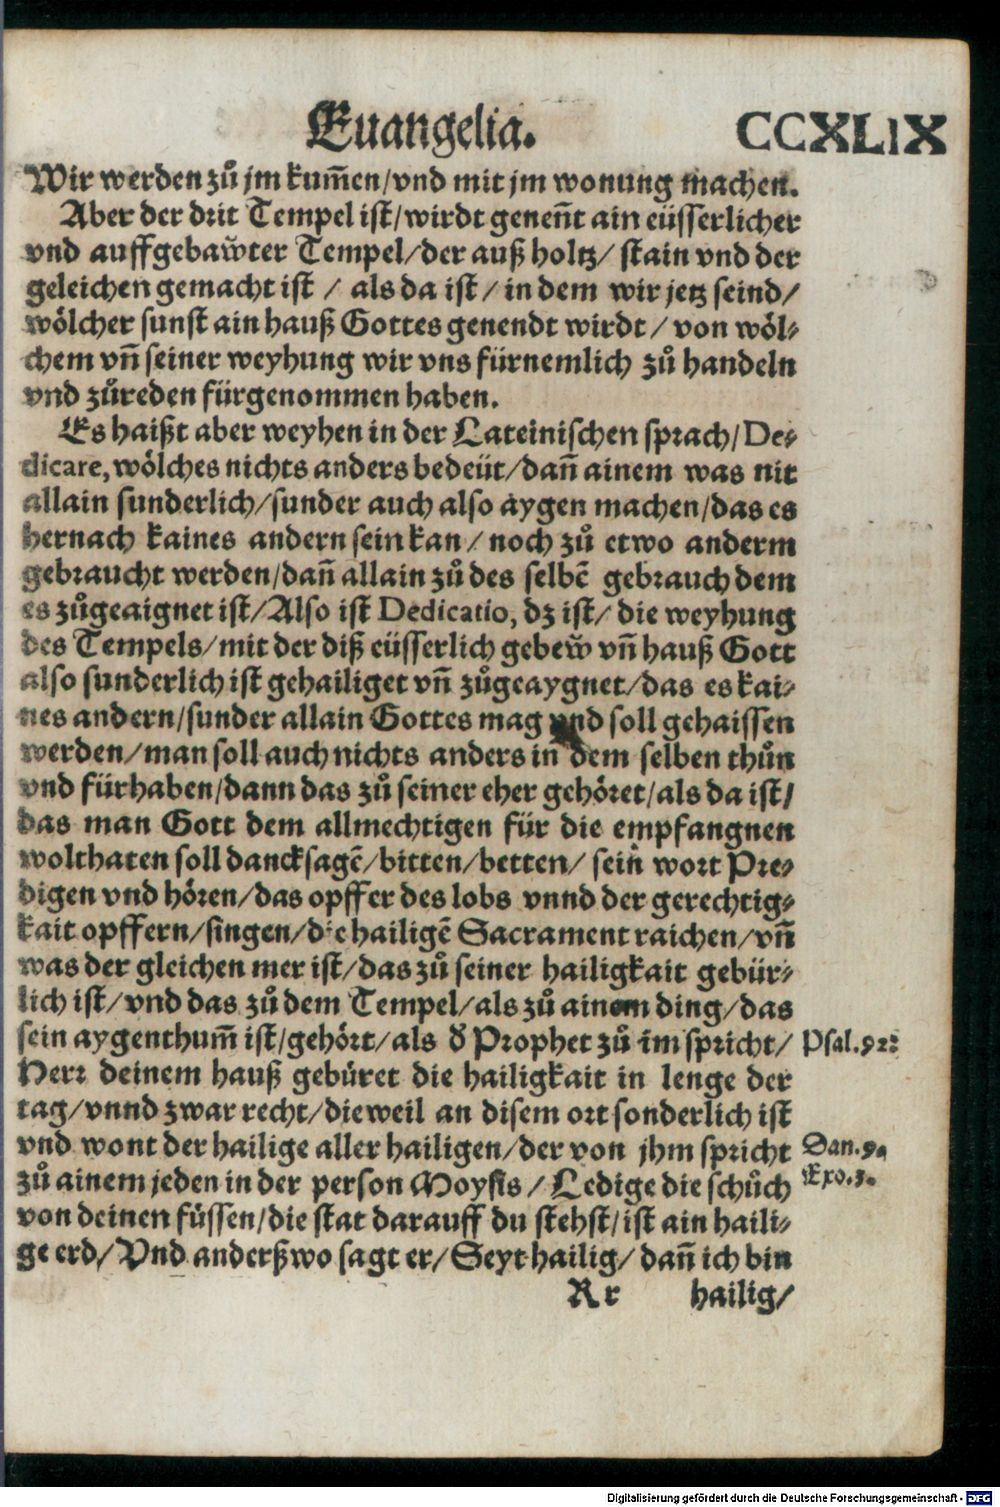 Euangelia. CCXLIX
Wir werden zů jm kum̃en/vnd mit jm wonung machen.
Aber der drit Tempel ist/wirdt genen̄t ain eüsserlicher
vnd auffgebaw̃ter Tempel/der auß holtz/ stain vnd der
geleichen gemacht ist / als da ist/ in dem wir jetz seind/
wölcher sunst ain hauß Gottes genendt wirdt/ von wöl⸗
chem vn̄ seiner weyhung wir vns fürnemlich zů handeln
vnd zůreden fürgenommen haben.
Es haißt aber weyhen in der Lateinischen sprach/ De⸗
dicare, wölches nichts anders bedeüt/dan̄ ainem was nit
allain sunderlich/sunder auch also aygen machen/das es
hernach kaines andern sein kan/ noch zů etwo anderm
gebraucht werden/dan̄ allain zů des selbē gebrauch dem
es zůgeaignet ist/Also ist Dedicatio, dz ist/ die weyhung
des Tempels/mit der diß eüsserlich gebew̃ vn̄ hauß Gott
also sunderlich ist gehailiget vn̄ zůgeaygnet/das es kai⸗
nes andern/sunder allain Gottes mag vnd soll gehaissen
werden/man soll auch nichts anders in dem selben thůn
vnd fürhaben/dann das zů seiner eher gehöret/als da ist/
das man Gott dem allmechtigen für die empfangnen
wolthaten soll dancksagē/bitten/betten/ sein wort Pre⸗
digen vnd hören/das opffer des lobs vnnd der gerechtig⸗
kait opffern/singen/die hailigē Sacrament raichen/vn̄
was der gleichen mer ist/das zů seiner hailigkait gebür⸗
lich ist/vnd das zů dem Tempel/als zů ainem ding/das
sein aygenthum̄ ist/gehört/als d̕ Prophet zů im spricht/ Psal.92:
Herr deinem hauß gebüret die hailigkait in lenge der
tag/vnnd zwar recht/dieweil an disem ort sonderlich ist
vnd wont der hailige aller hailigen/der von jhm spricht Dan.9.
zů ainem jeden in der person Moysis/ Ledige die schůch Exo.3.
von deinen füssen/die stat darauff du stehst/ist ain haili⸗
ge erd/Vnd anderßwo sagt er/Seyt hailig/ dan̄ ich bin
Rr hailig/
Digitalisierung gefördert durch die Deutsche Forschungsgemeinschaft - DFG